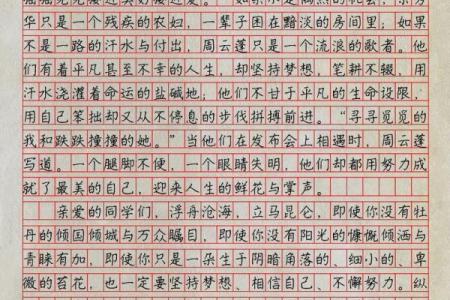 华只是一个残疾的农妇，一辈子困在黯淡的房间里；如果
不是一路的汗水与付出，周云蓬只是一个流浪的歌者。他
们有着平凡甚至不幸的人生，却坚持梦想，笔耕不辍，用
汗水浇灌着命运的盐碱地；他们不甘于平凡的生命设限，
用自己笨拙却又从不停息的步伐拼搏前进。“寻寻觅觅的
我和跌跌撞撞的她。”当他们在发布会上相遇时，周云蓬
写道。一个腿脚不便，一个眼睛失明，他们却都用努力成
就了最美的自己，迎来人生的鲜花与掌声。
亲爱的同学们，浮舟沧海，立马昆仑，即使你没有牡
丹的倾国倾城与万众瞩目，即使你没有阳光的慷慨倾洒与
青睐有加，即使你只是一朵生于阴暗角落的、细小的、卑
微的苔花，也一定要坚持梦想、相信自己、不懈努力。纵